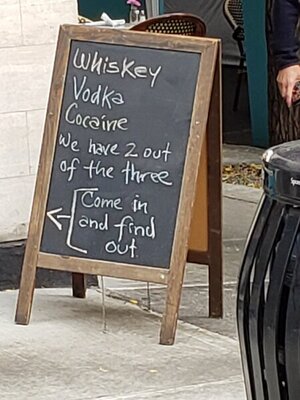 Whiskey
Vodka
Cocaine
We have 2 out
of the three
Come in
and find
out